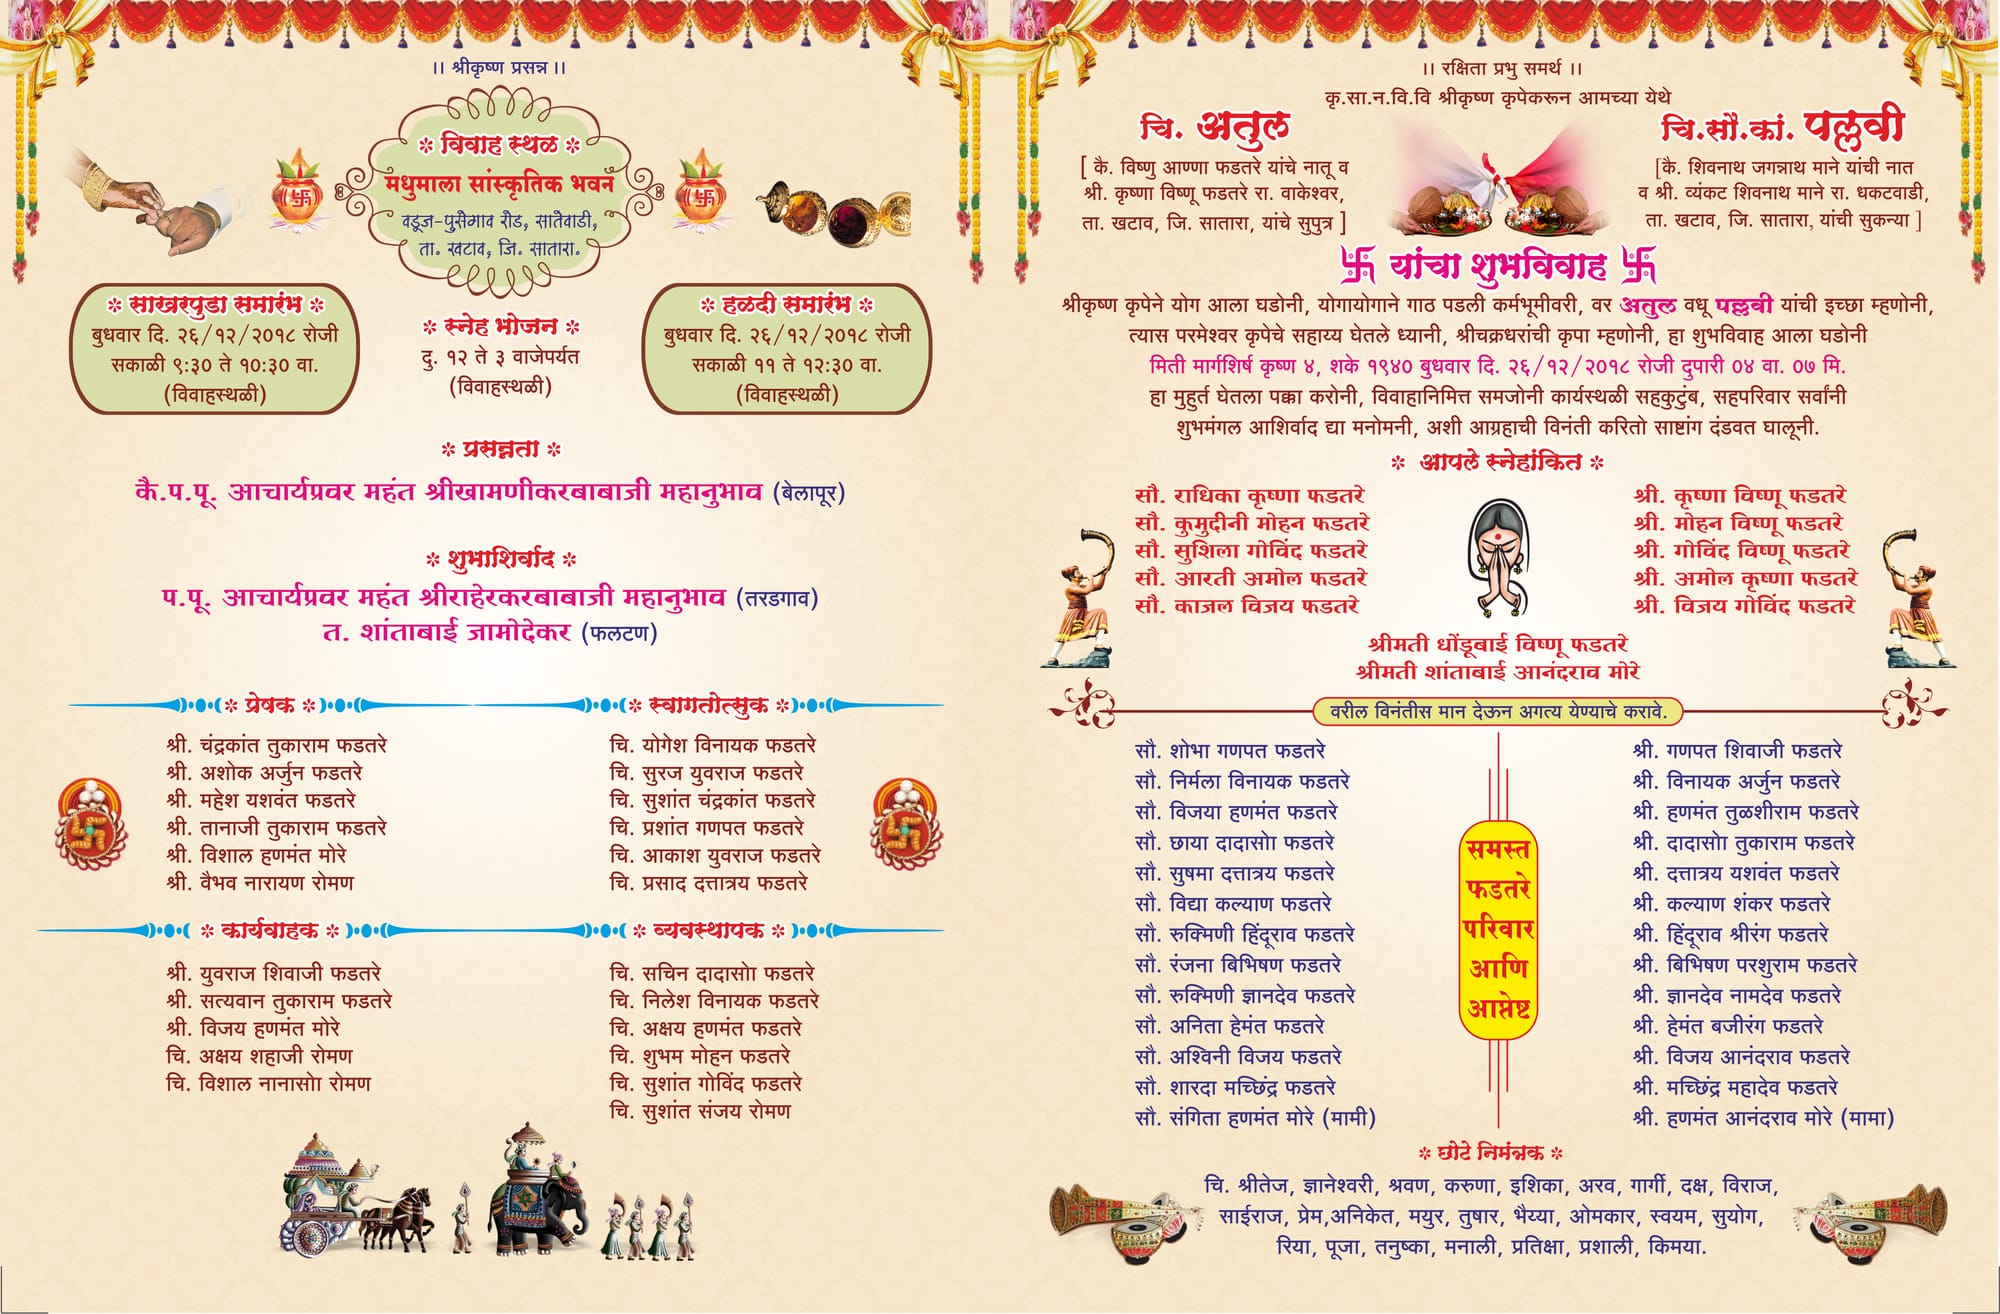 ।। श्रीकृष्ण प्रसन्न ।।
* विवाह स्थळ *
मधुमाला सांस्कृतिक भवन
वडूज-पुसेगाव रोड, सातेवाडी,
ता. खटाव, जि. सातारा.
* साखरपुडा समारंभ *
बुधवार दि. २६/१२/२०१८ रोजी
सकाळी ९:३० ते १०:३० वा.
(विवाहस्थळी)
* स्नेह भोजन *
दु. १२ ते ३ वाजेपर्यत
(विवाहस्थळी)
* हळदी समारंभ *
बुधवार दि. २६/१२/२०१८ रोजी
सकाळी ११ ते १२:३० वा.
(विवाहस्थळी)
* प्रसन्नता *
कै.प.पू. आचार्यप्रवर महंत श्रीखामणीकरबाबाजी महानुभाव (बेलापूर)
* शुभाशिर्वाद *
प.पू. आचार्यप्रवर महंत श्रीराहेरकरबाबाजी महानुभाव (तरडगाव)
त. शांताबाई जामोदेकर (फलटण)
* प्रेषक *
श्री. चंद्रकांत तुकाराम फडतरे
श्री. अशोक अर्जुन फडतरे
श्री. महेश यशवंत फडतरे
श्री. तानाजी तुकाराम फडतरे
श्री. विशाल हणमंत मोरे
श्री. वैभव नारायण रोमण
* स्वागतोत्सुक *
चि. योगेश विनायक फडतरे
चि. सुरज युवराज फडतरे
चि. सुशांत चंद्रकांत फडतरे
चि. प्रशांत गणपत फडतरे
चि. आकाश युवराज फडतरे
चि. प्रसाद दत्तात्रय फडतरे
* कार्यवाहक *
श्री. युवराज शिवाजी फडतरे
श्री. सत्यवान तुकाराम फडतरे
श्री. विजय हणमंत मोरे
चि. अक्षय शहाजी रोमण
चि. विशाल नानासो रोमण
* व्यवस्थापक *
चि. सचिन दादासो फडतरे
चि. निलेश विनायक फडतरे
चि. अक्षय हणमंत फडतरे
चि. शुभम मोहन फडतरे
चि. सुशांत गोविंद फडतरे
चि. सुशांत संजय रोमण
।। रक्षिता प्रभु समर्थ ।।
कृ.सा.न.वि.वि श्रीकृष्ण कृपेकरून आमच्या येथे
चि. अतुल
[ कै. विष्णु आण्णा फडतरे यांचे नातू व
श्री. कृष्णा विष्णू फडतरे रा. वाकेश्वर,
ता. खटाव, जि. सातारा, यांचे सुपुत्र ]
चि.सौ.कां. पल्लवी
[कै. शिवनाथ जगन्नाथ माने यांची नात
व श्री. व्यंकट शिवनाथ माने रा. धकटवाडी,
ता. खटाव, जि. सातारा, यांची सुकन्या ]
卐 यांचा शुभविवाह 卐
श्रीकृष्ण कृपेने योग आला घडोनी, योगायोगाने गाठ पडली कर्मभूमीवरी, वर अतुल वधू पल्लवी यांची इच्छा म्हणोनी,
त्यास परमेश्वर कृपेचे सहाय्य घेतले ध्यानी, श्रीचक्रधरांची कृपा म्हणोनी, हा शुभविवाह आला घडोनी
मिती मार्गशिर्ष कृष्ण ४, शके १९४० बुधवार दि. २६/१२/२०१८ रोजी दुपारी ०४ वा. ०७ मि.
हा मुहुर्त घेतला पक्का करोनी, विवाहानिमित्त समजोनी कार्यस्थळी सहकुटुंब, सहपरिवार सर्वांनी
शुभमंगल आशिर्वाद द्या मनोमनी, अशी आग्रहाची विनंती करितो साष्टांग दंडवत घालूनी.
* आपले स्नेहांकित *
सौ. राधिका कृष्णा फडतरे
सौ. कुमुदीनी मोहन फडतरे
सौ. सुशिला गोविंद फडतरे
सौ. आरती अमोल फडतरे
सौ. काजल विजय फडतरे
श्री. कृष्णा विष्णू फडतरे
श्री. मोहन विष्णू फडतरे
श्री. गोविंद विष्णू फडतरे
श्री. अमोल कृष्णा फडतरे
श्री. विजय गोविंद फडतरे
श्रीमती धोंडूबाई विष्णू फडतरे
श्रीमती शांताबाई आनंदराव मोरे
वरील विनंतीस मान देऊन अगत्य येण्याचे करावे.
सौ. शोभा गणपत फडतरे
सौ. निर्मला विनायक फडतरे
सौ. विजया हणमंत फडतरे
सौ. छाया दादासो फडतरे
सौ. सुषमा दत्तात्रय फडतरे
सौ. विद्या कल्याण फडतरे
सौ. रुक्मिणी हिंदूराव फडतरे
सौ. रंजना बिभिषण फडतरे
सौ. रुक्मिणी ज्ञानदेव फडतरे
सौ. अनिता हेमंत फडतरे
सौ. अश्विनी विजय फडतरे
सौ. शारदा मच्छिंद्र फडतरे
सौ. संगिता हणमंत मोरे (मामी)
समस्त
फडतरे
परिवार
आणि
आप्तेष्ट
श्री. गणपत शिवाजी फडतरे
श्री. विनायक अर्जुन फडतरे
श्री. हणमंत तुळशीराम फडतरे
श्री. दादासो तुकाराम फडतरे
श्री. दत्तात्रय यशवंत फडतरे
श्री. कल्याण शंकर फडतरे
श्री. हिंदूराव श्रीरंग फडतरे
श्री. बिभिषण परशुराम फडतरे
श्री. ज्ञानदेव नामदेव फडतरे
श्री. हेमंत बजीरंग फडतरे
श्री. विजय आनंदराव फडतरे
श्री. मच्छिंद्र महादेव फडतरे
श्री. हणमंत आनंदराव मोरे (मामा)
* छोटे निमंत्रक *
चि. श्रीतेज, ज्ञानेश्वरी, श्रवण, करुणा, इशिका, अरव, गार्गी, दक्ष, विराज,
साईराज, प्रेम,अनिकेत, मयुर, तुषार, भैय्या, ओमकार, स्वयम, सुयोग,
रिया, पूजा, तनुष्का, मनाली, प्रतिक्षा, प्रशाली, किमया.